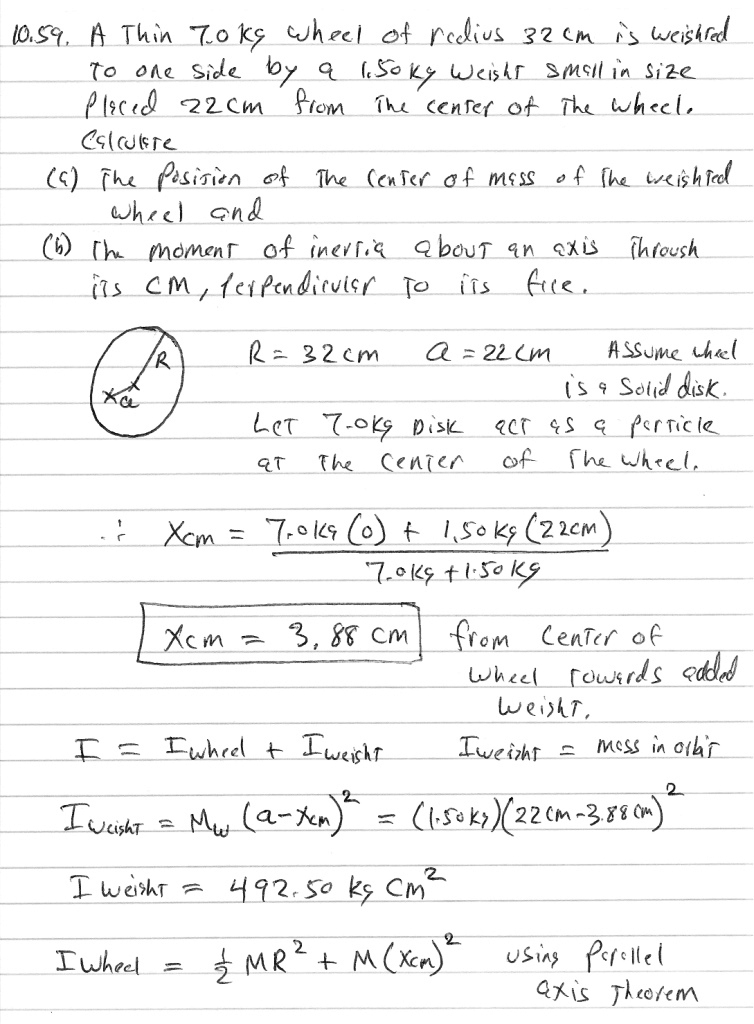 10.59. A Thin 7.0 kg wheel of radius 32 cm is weighted
to one side by a 1.50 kg weight small in size
placed 22 cm from the center of the wheel.
Calculate
(a) The Position of the center of mass of the weighted
wheel and
(b) The moment of inertia about an axis through
its CM, perpendicular to its face.
R = 32 cm a = 22 cm Assume wheel
is a solid disk.
R
a
Let 7.0 kg Disk act as a particle
at the center of the wheel.
∴ Xcm = 7.0 kg (0) + 1.50 kg (22 cm)
7.0 kg + 1.50 kg
Xcm = 3.88 cm from center of
wheel towards added
weight.
I = Iwheel + Iweight Iweight = mass in orbit
Iweight = Mw (a-Xcm)² = (1.50 kg)(22 cm - 3.88 cm)²
Iweight = 492.50 kg cm²
Iwheel = ½ MR² + M (Xcm)² using parallel
axis Theorem